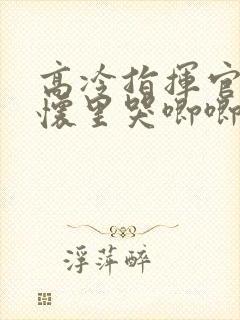 高冷指揮官
懷里哭唧唧
浮萍醉